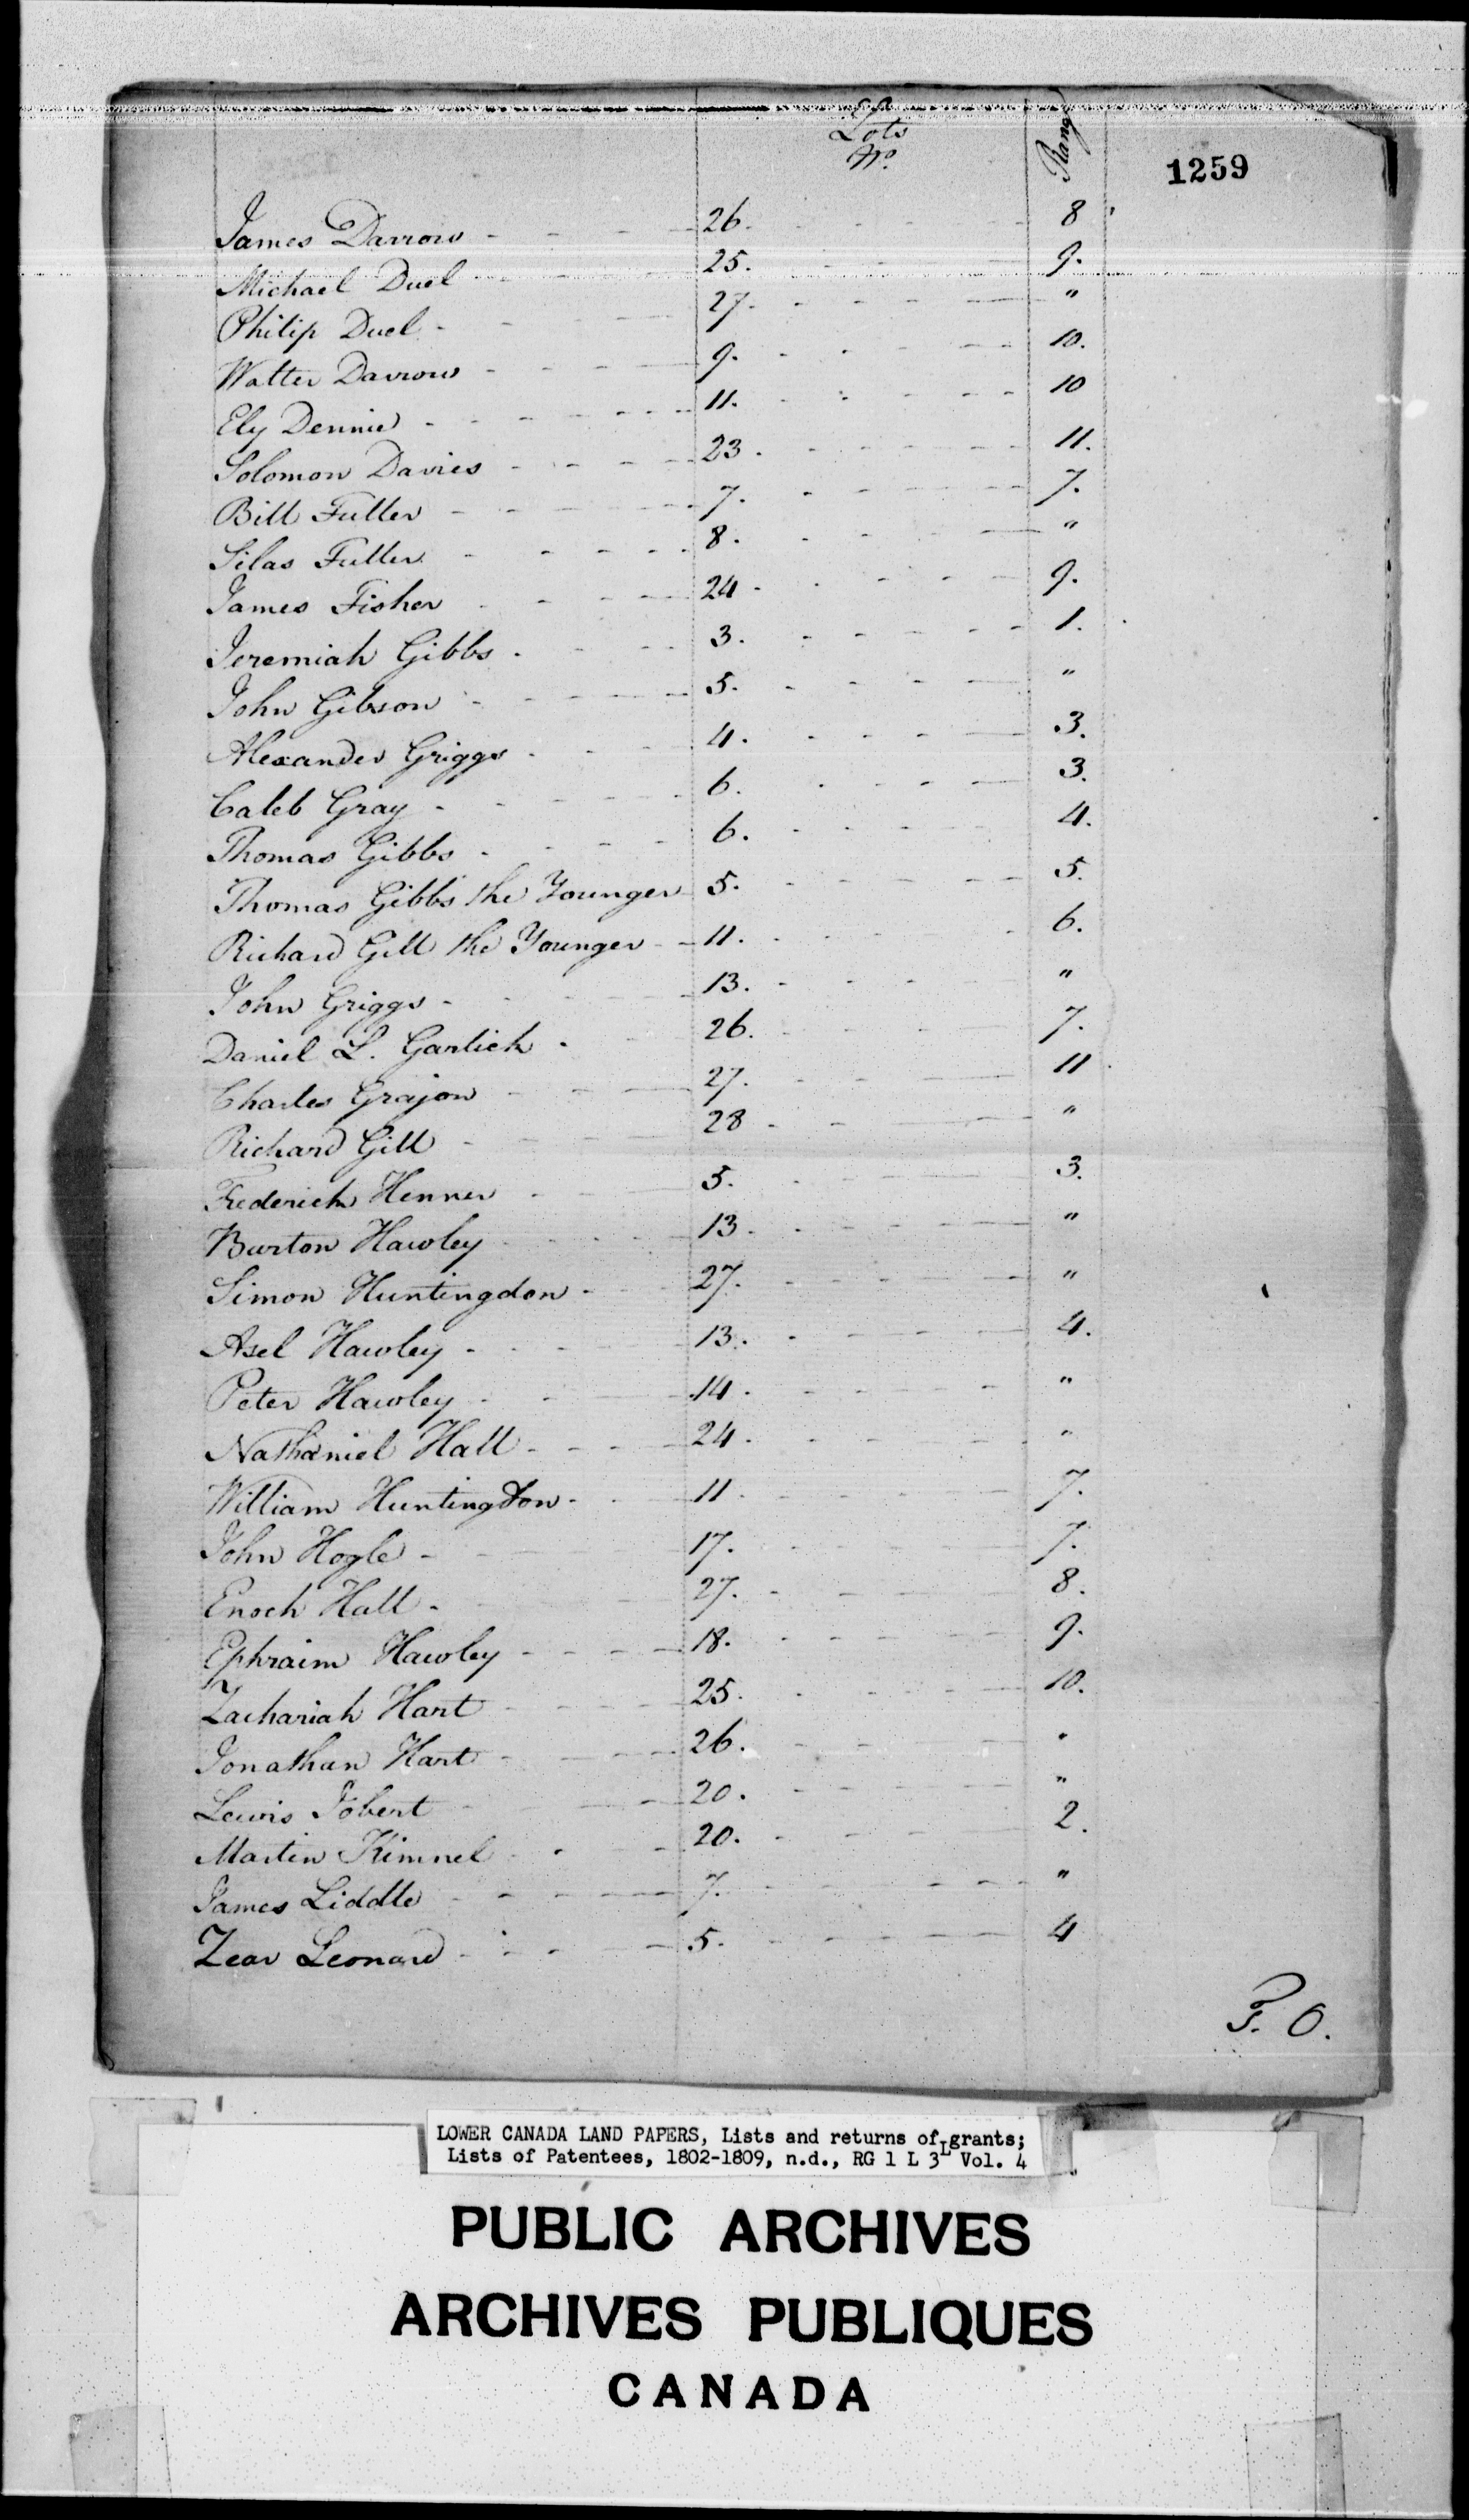 Lots
No.
Range
1259
James Darrow - 26. 8
Michael Duel 25. 9.
Philip Duel - 27. "
Walter Darrow - 9. 10.
Ely Dennie - 11. 10
Solomon Davies - 23. 11.
Bill Fuller - 7. 7.
Silas Fuller - 8. "
James Fisher - 24 9.
Jeremiah Gibbs - 3. 1.
John Gibson - 5. "
Alexander Griggs - 4. 3.
Caleb Gray - 6. 3.
Thomas Gibbs - 6. 4.
Thomas Gibbs the Younger 5. 5.
Richard Gill the Younger - 11. 6.
John Griggs - 13. "
Daniel L. Garlick - 26. 7.
Charles Grajon - 27. 11
Richard Gill - 28 "
Frederick Henner - 5. 3.
Burton Hawley - 13. "
Simon Huntingdon - 27. "
Asel Hawley - 13. 4.
Peter Hawley - 14. "
Nathaniel Hall - 24. "
William Huntingdon - 11. 7.
John Hogle - 17. 7.
Enoch Hall - 27. 8.
Ephraim Hawley - 18. 9.
Zachariah Hart - 25. 10.
Jonathan Hart - 26. "
Lewis Jobert - 20. "
Martin Kimnel - 20. 2.
James Liddle - 7. "
Zear Leonard - 5. 4
T. O.
LOWER CANADA LAND PAPERS, Lists and returns of grants;
Lists of Patentees, 1802-1809, n.d., RG 1 L 3L Vol. 4
PUBLIC ARCHIVES
ARCHIVES PUBLIQUES
CANADA